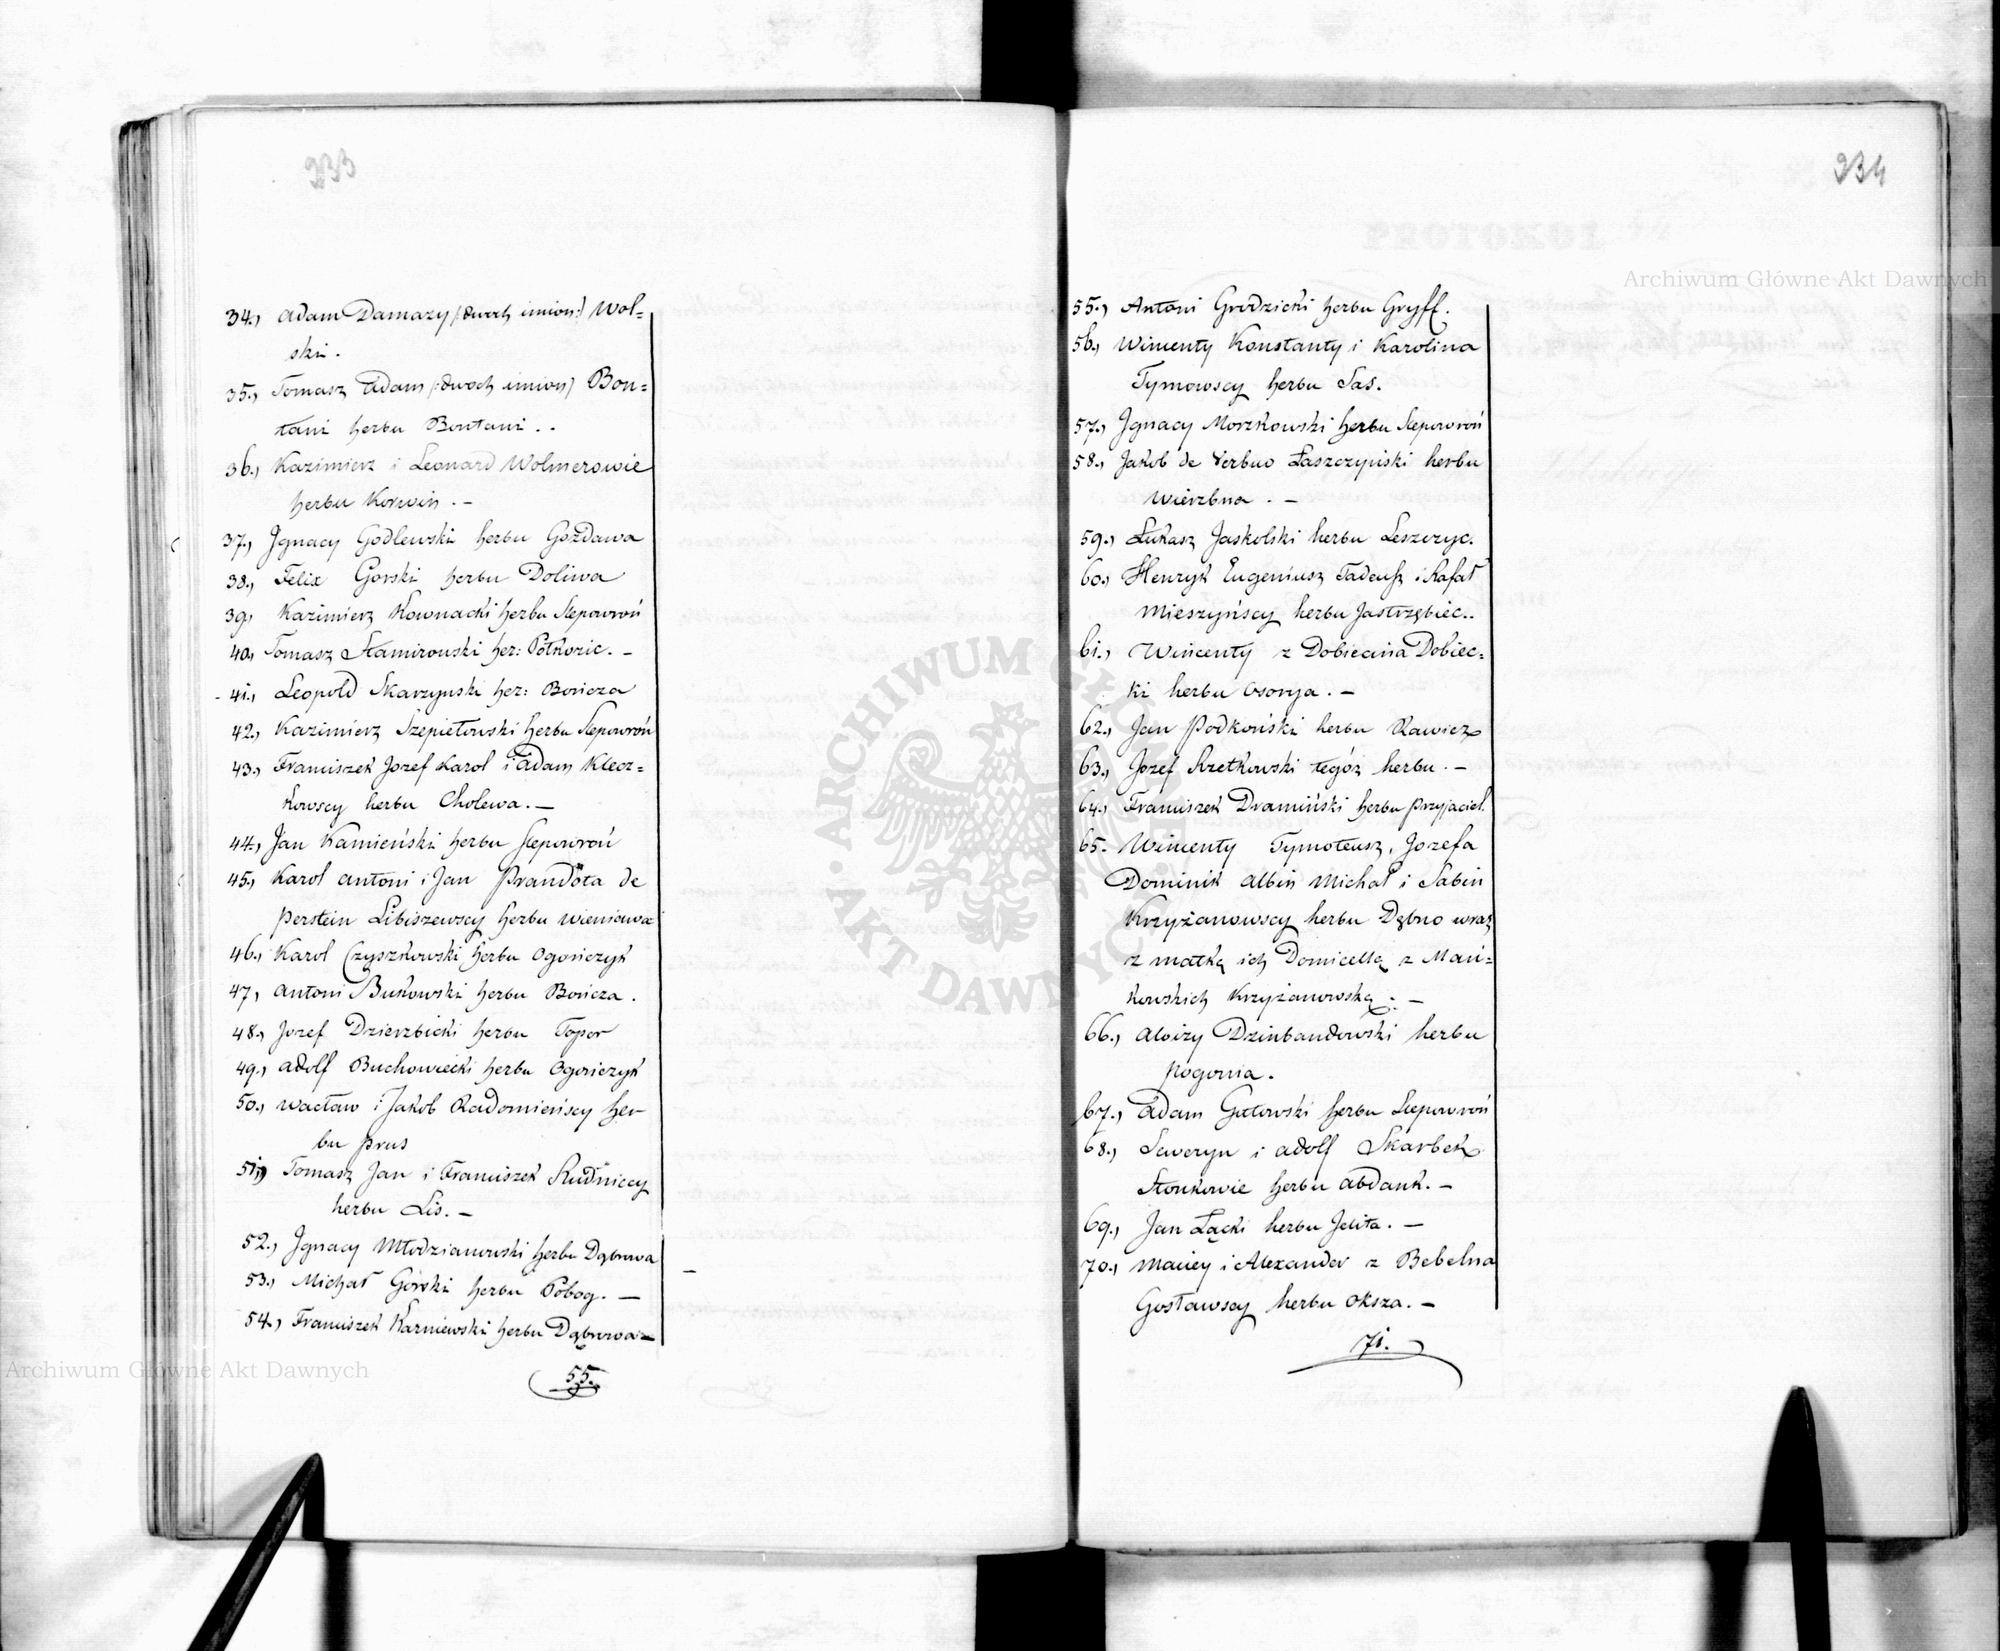 233
34., Adam Damazy /:dwoch imion:/ Wol-
ski.
35., Tomasz Adam /:dwoch imion/ Bon-
tani herbu Bontani ..
36., Kazimierz i Leonard Wolmerowie
herbu Korwin. -
37., Ignacy Godlewski herbu Gozdawa
38., Felix Gorski herbu Doliwa
39, Kazimierz Kownacki herbu Slepowroń
40., Tomasz Stamirowski her: Półkozic. -
41., Leopold Skarzynski her: Bończa
42., Kazimierz Szepietowski herbu Slepowroń
43., Franciszek Jozef Karol i Adam Klecz=
kowscy herbu Cholewa. -
44., Jan Kamieński herbu Slepowroń
45., Karol Antoni i Jan Prandota de
Perstein Libiszewscy herbu Wieniawa
46., Karol Czyszkowski herbu Ogończyk
47, Antoni Bukowski herbu Bończa.
48., Jozef Dzierzbicki herbu Topor
49., Adolf Buchowiecki herbu Ogończyk
50., Wacław i Jakob Radomieńscy her-
bu Prus
51., Tomasz Jan i Franciszek Rudniccy
herbu Lis. -
52., Ignacy Młodzianowski herbu Dąbrowa
53., Michał Górski herbu Pobog. -
54., Franciszek Karniewski herbu Dąbrowa -
55.
234
55., Antoni Grodzicki herbu Gryff.
56., Wincenty Konstanty i Karolina
Tymowscy herbu Sas.
57., Ignacy Morzkowski herbu Slepowroń
58., Jakob de Verbno Łaszczyński herbu
Wierzbna. -
59., Łukasz Jaskolski herbu Leszczyc.
60., Henryk Eugeniusz Tadeusz i Rafał
Mieszyńscy herbu Jastrzębiec..
61., Wincenty z Dobiecina Dobiec=
ki herbu Ossorya. -
62., Jan Podkoński herbu Rawicz
63., Jozef Rzetkowski tegóż herbu. -
64., Franciszek Dramiński herbu Przyjaciel.
65. Wincenty Tymoteusz, Jozefa
Dominik Albin Michał i Sabin
Krzyżanowscy herbu Dębno wraz
z matką ich Domicellą z Mań=
kowskich Krzyżanowską. -
66., Aloizy Dzinbandowski herbu
Pogonia.
67., Adam Gutowski herbu Slepowroń
68., Seweryn i Adolf Skarbek
Słonkowie herbu Abdank. -
69., Jan Łącki herbu Jelita. -
70., Maciey i Alexander z Bebelna
Gosławscy herbu Oksza. -
71.
Archiwum Główne Akt Dawnych
Archiwum Główne Akt Dawnych
ARCHIWUM GŁÓWNE AKT DAWNYCH